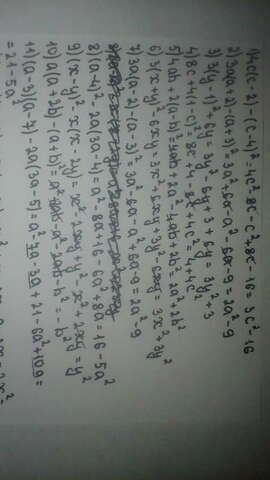 1) 4c(c-2)-(c-4)²=4c²-8c-c²+8c-16=3c²-16
2) 3a(a+2)-(a+3)²=3a²+6a-a²-6a-9=2a²-9
3) 3(y-1)²+6y=3y²-6y+3+6y=3y²+3
4) 8c+4(1-c)²=8c+4-8c+4c²=4+4c²
5) 4ab+2(a-b)²=4ab+2a²-4ab+2b²=2a²+2b²
6) 3(x+y)²-6xy=3x²+6xy+3y²-6xy=3x²+3y²
7) 3a(a-2)-(a-3)²=3a²-6a-a²+6a-9=2a²-9
8) (a-4)²-2a(3a-4)=a²-8a+16-6a²+8a=16-5a²
9) (x-y)²-x(x-2y)=x²-2xy+y²-x²+2xy=y²
10) a(a+2b)-(a+b)²=a²+2ab-a²-2ab-b²=-b²
11) (a-3)(a-7)-2a(3a-5)=a²-7a-3a+21-6a²+10a=
=21-5a²